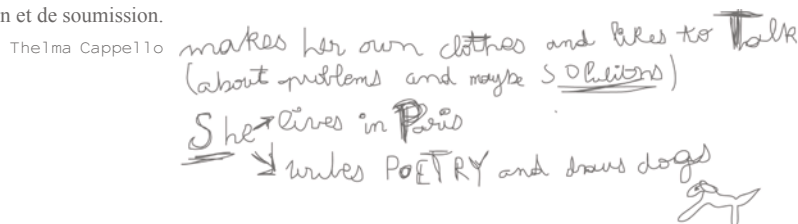 n et de soumission.
Thelma Cappello makes her own clothes and likes to Talk
(about problems and maybe SOlutions)
She lives in Paris
writes POETRY and draws dogs